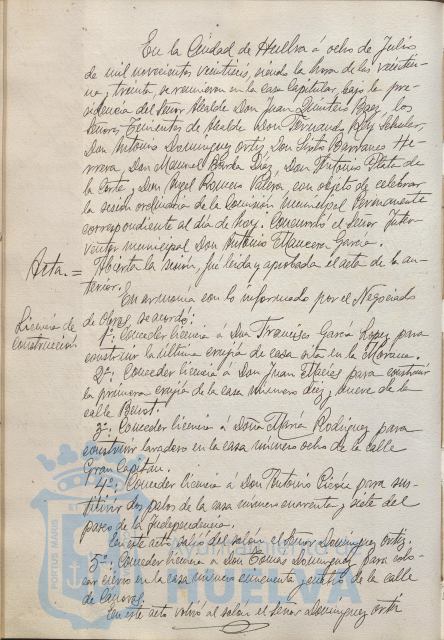 En la Ciudad de Huelva á ocho de Julio
de mil novecientos veintiseis, siendo la hora de las veintiu-
na y treinta, se reunieron en la casa Capitular, bajo la pre-
sidencia del Señor Alcalde Don Juan Quintero Baez los
Señores Tenientes de Alcalde Don Fernando Rey
Don Antonio Dominguez Ortiz, Don Sixto Barranco He-
rrera, Don Manuel Barba Diaz, Don Antonio Plata de
la Corte y Don Angel Romero Valera, con objeto de celebrar
la sesión ordinaria de la Comisión Municipal Permanente
correspondiente al día de hoy. Concurrió el Señor Inter-
ventor municipal Don Antonio Mancera Garcia.
Acta.= Abierta la sesión, fué leida y aprobada el acta de la an-
terior.
En armonía con lo informado por el Negociado
Licencia de
construcción
de Obras se acordó:
1º: Conceder licencia á Don Francisco Garcia Lopez para
construir la última crugía de casa sita en la
2º: Conceder licencia á Don Juan Macías para construir
la primera crugía de la casa número diez y nueve de la
calle
3º: Conceder licencia á Doña María Rodriguez para
construir lavadero en la casa número ocho de la calle
Gran Capitán.
4º: Conceder licencia á Don Antonio para sus-
tituir dos palos de la casa número cuarenta y siete del
paseo de la Independencia.
En este acto salió del salón el Señor Dominguez Ortiz.
5º: Conceder licencia á Don Tomas Dominguez para colo-
car en la casa número cincuenta y cuatro de la calle
de Canovas.
En este acto volvió al salón el Señor Dominguez Ortiz
PORTUS MARIS
Ayuntamiento de
HUELVA